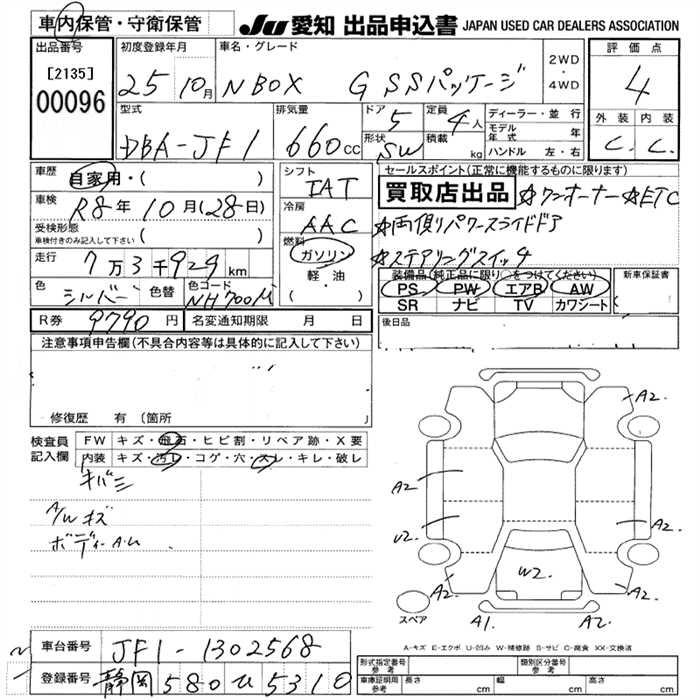 車内保管・守衛保管
JU 愛知 出品申込書 JAPAN USED CAR DEALERS ASSOCIATION
出品番号
[2135]
00096
初度登録年月
25 10月
車名・グレード
N BOX G SSパッケージ
2WD
・
4WD
評価点
4
外装 内装
C. C.
型式
DBA-JF1
排気量
660cc
ドア
5
形状
SW
定員
4人
積載
kg
ディーラー・並行
モデル年式 年
ハンドル 左・右
車歴
自家用・( )
車検
R8年10月(28日)
受検形態
車検付きのみ記入して下さい
( )
走行
7万3千929km
色
シルバー
色替
色コード
NH700M
シフト
IAT
冷房
AAC
燃料
ガソリン
・軽油・
( )
セールスポイント(正常に機能するものに限ります)
買取店出品 ☆ワンオーナー ☆ETC
☆両側パワースライドドア
☆ステアリングスイッチ
装備品(純正品に限り○をつけてください)
PS PW エアB AW
SR ナビ TV カワシート
新車保証書
後日品
R券 9790円
名変通知期限 月 日
注意事項申告欄(不具合内容等は具体的に記入して下さい)
修復歴 有(箇所
検査員記入欄
FW キズ・飛石・ヒビ割・リペア跡・X要
内装 キズ・汚レ・コゲ・穴・スレ・キレ・破レ
キバミ
A/Wキズ
ボディーA.U
A2.
A2
A2
U2.
W2.
A2.
A2.
A2.
A1.
スペア
A-キズ E-エクボ U-凹み W-補修跡 S-サビ C-腐食 XX-交換済
車台番号 JF1-1302568
登録番号 静岡 580 ひ 5310
形式指定番号
参考
類別区分番号
参考
車庫証明用
参考
長さ cm 幅 cm 高さ cm